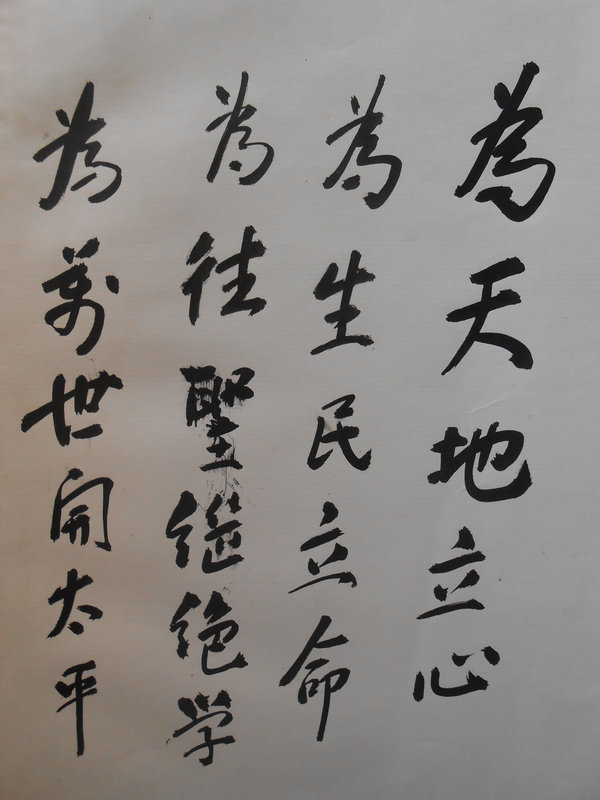 為天地立心
為生民立命
為往聖继绝学
為萬世開太平